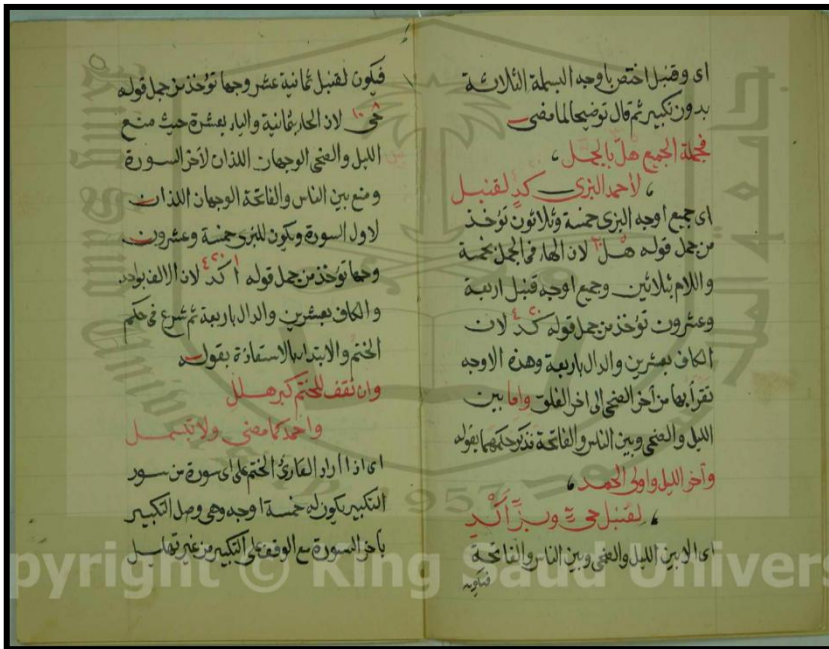 اى وقنبل اختص باوجه البسملة الثلاثة
بدون تكبير ثم قال توضيحا لما مضى
فجملة الجميع هل بالجمل ،
، لأحمد البزى كد لقنبل
اى جميع اوجه البزى خمسة وثلاثون تؤخذ
من جمل قوله هل لان الهاء فى الجمل بخمسة
واللام بثلاثين وجميع اوجه قنبل اربعة
وعشرون تؤخذ من جمل قوله كد لان
الكاف بعشرين والدال باربعة وهذه الاوجه
تقرأ بها من آخر الضحى الى اخر الفلق واما بين
الليل والضحى وبين الناس والفاتحة فذكر حكمهما بقوله
وآخر الليل واولى الحمد ،
، لقنبل حى وبز أكد
اى الا بين الليل والضحى وبين الناس والفاتحة
فيكون
فيكون لقنبل ثمانية عشر وجها تؤخذ من جمل قوله
حى لان الحاء بثمانية والياء بعشرة حيث منع
الليل والضحى الوجهان اللذان لآخر السورة
ومنع بين الناس والفاتحة الوجهان اللذان
لاول السورة ويكون للبزى خمسة وعشرون
وجها تؤخذ من جمل قوله أكد لان الالف بواحد
والكاف بعشرين والدال باربعة ثم شرع فى حكم
الختم والابتداء بالاستعاذة بقوله
وان تقف للختم كبر هلل
واحمد كما مضى ولا تبسمل
اى اذا أراد القارئ الختم على اى سورة من سور
التكبير يكون له خمسة اوجه وهى وصل التكبير
بآخر السورة مع الوقف على التكبير من غير تهليل
جامعة الملك سعود
1957
King Saud University
pyright © King Saud Univers